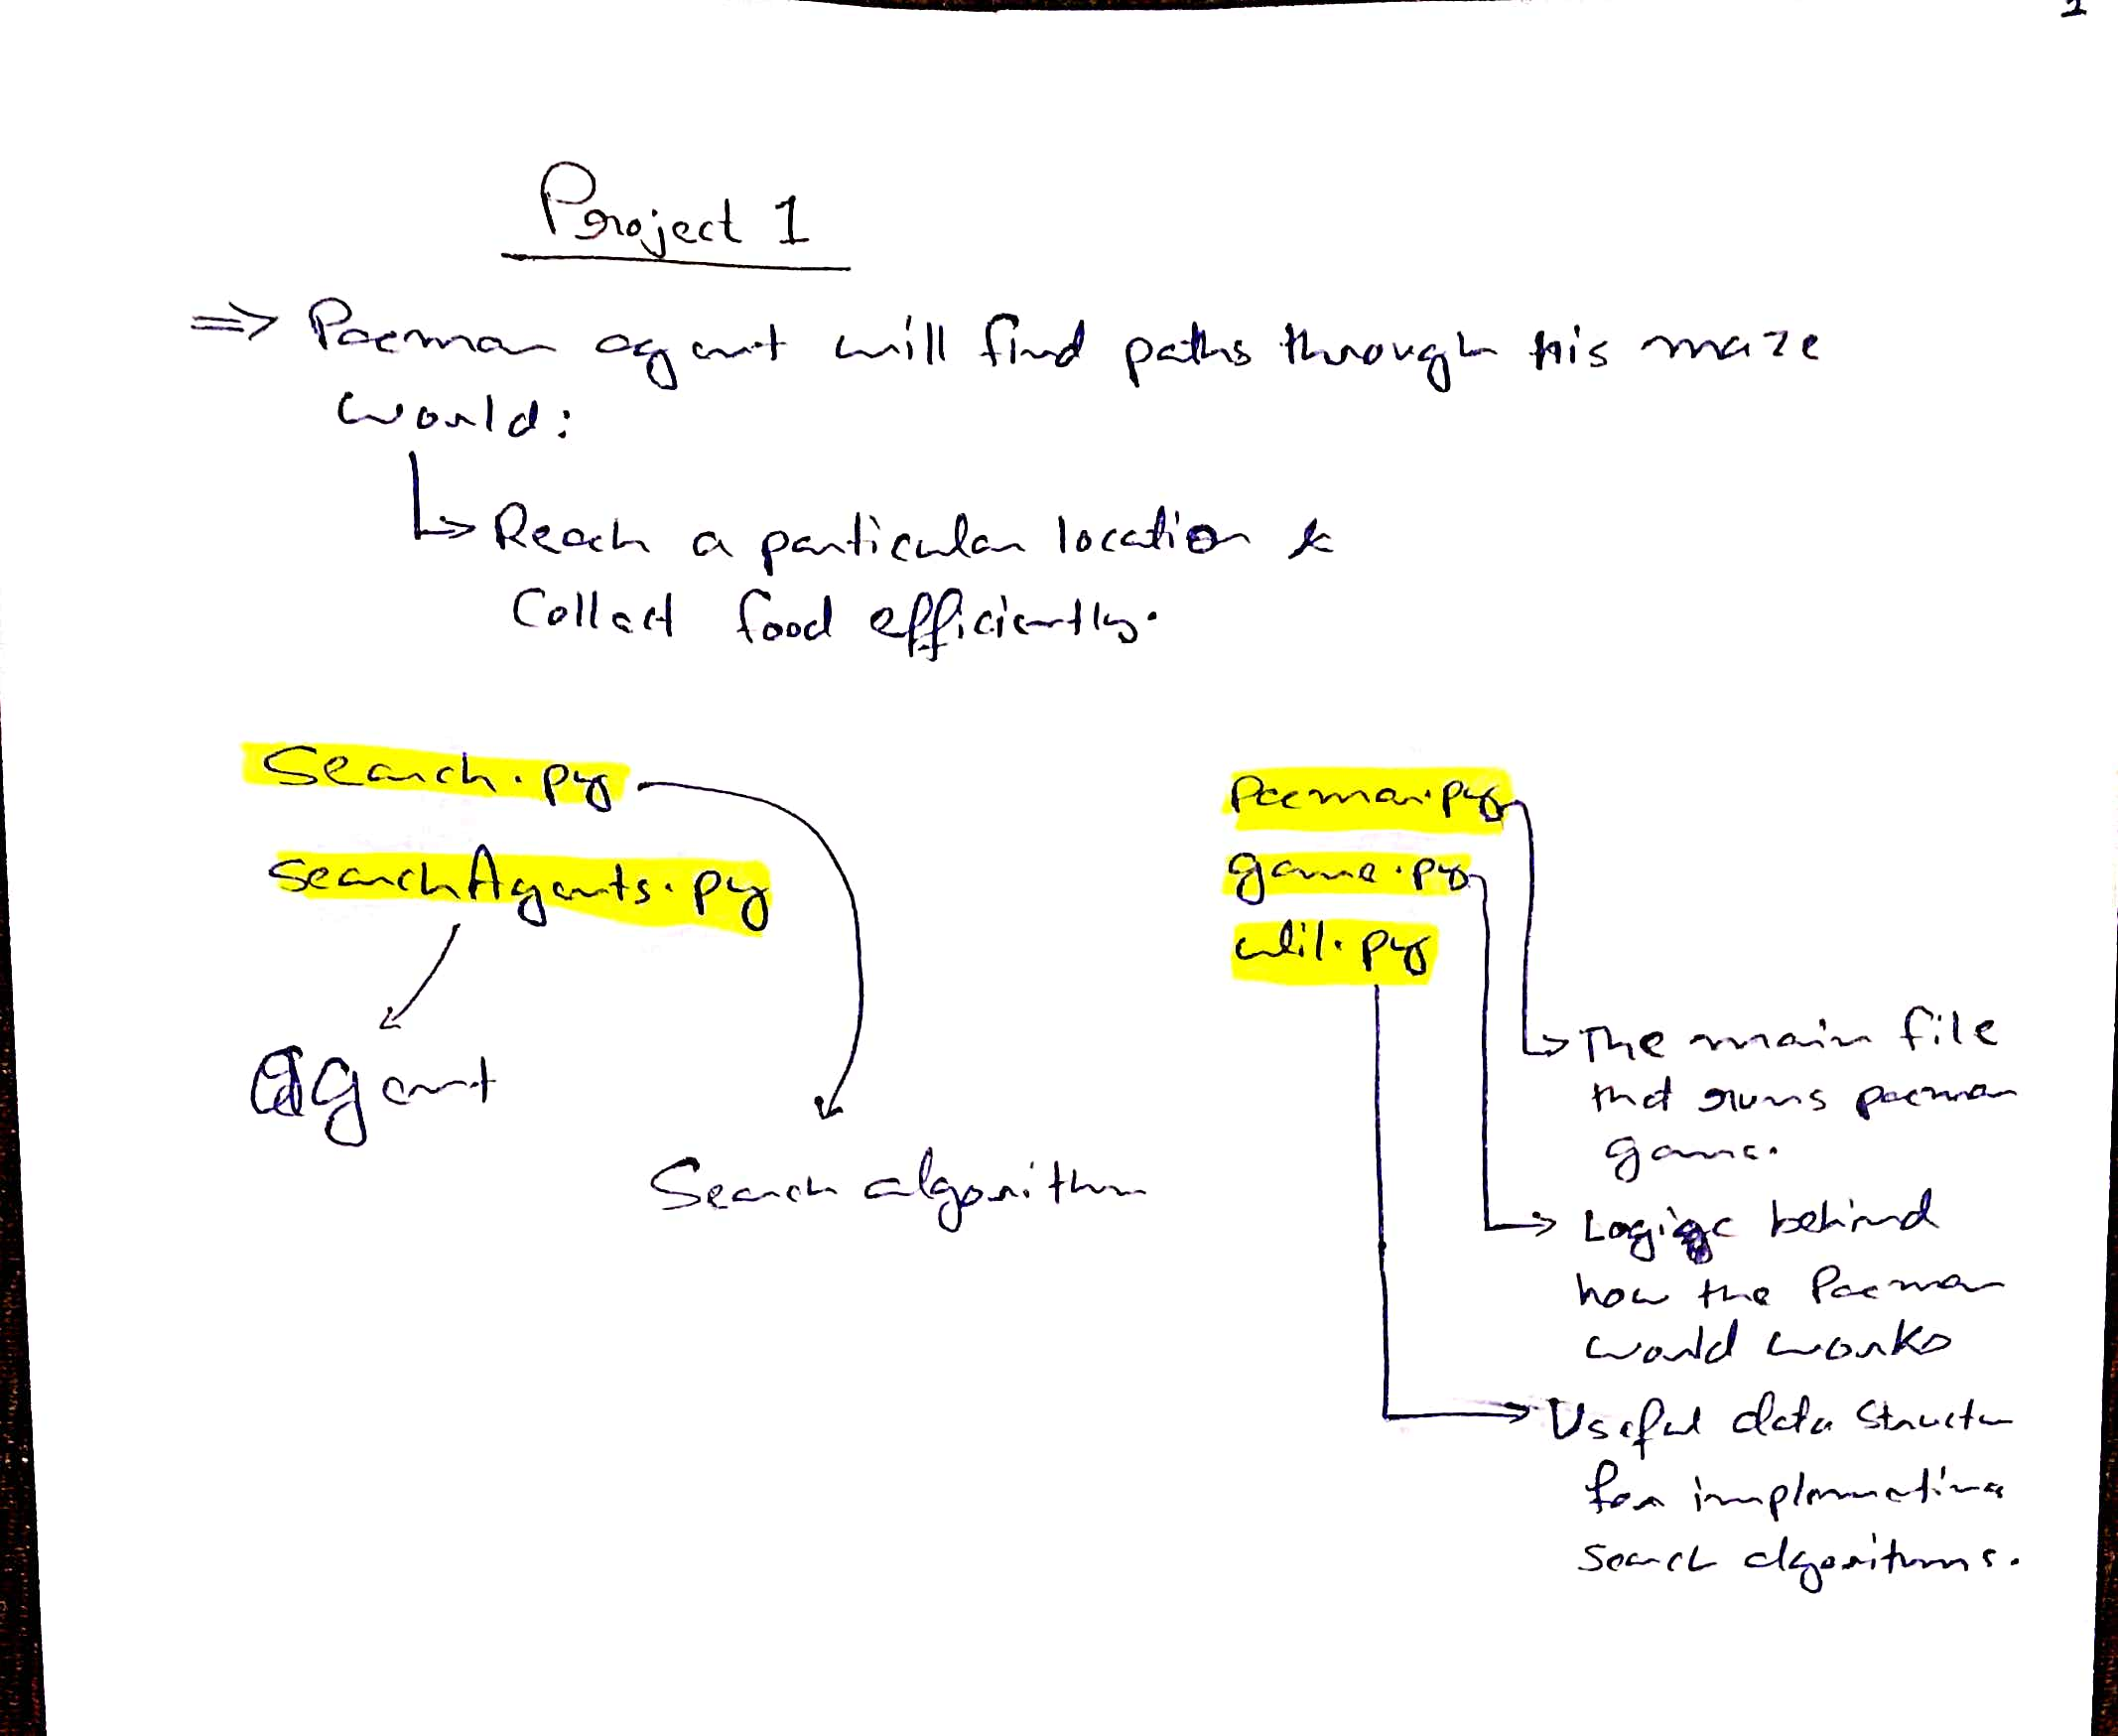 1
Project 1
⇒ Pacman agent will find paths through his maze
world:
Reach a particular location &
Collect food efficiently.
Search.py
searchAgents.py
agent
Search algorithm
Pacman.py
game.py
util.py
The main file
that runs pacman
game.
Logic behind
how the Pacman
world works
Useful data Structu
for implementing
Search algorithms.